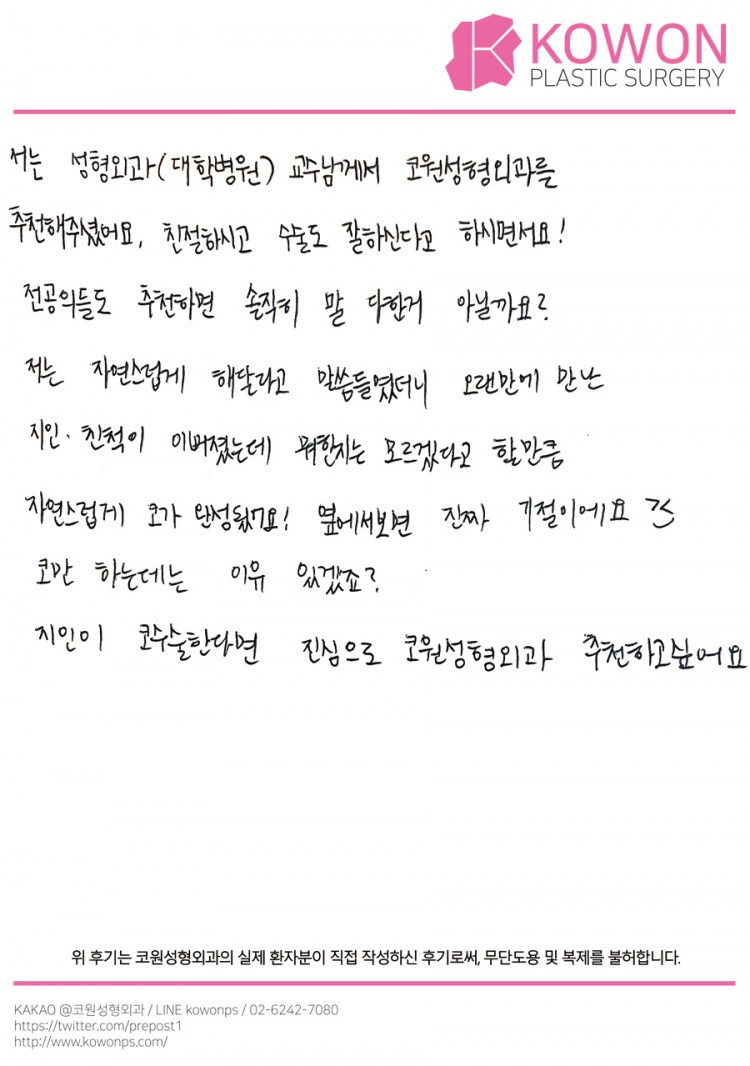 KOWON
PLASTIC SURGERY
저는 성형외과(대학병원) 교수님께서 코원성형외과를
추천해주셨어요, 친절하시고 수술도 잘하신다고 하시면서요!
전공의들도 추천하면 솔직히 말 다한거 아닐까요?
저는 자연스럽게 해달라고 말씀들였더니 오랜만에 만난
지인·친척이 이뻐졌는데 뭐한지는 모르겠다고 할만큼
자연스럽게 코가 완성됬어요! 옆에서보면 진짜 기절이에요 ㅋㅋ
코만 하는데는 이유 있겠죠?
지인이 코수술한다면 진심으로 코원성형외과 추천하고싶어요
위 후기는 코원성형외과의 실제 환자분이 직접 작성하신 후기로써, 무단도용 및 복제를 불허합니다.
KAKAO @코원성형외과 / LINE kowonps / 02-6242-7080
https://twitter.com/prepost1
http://www.kowonps.com/